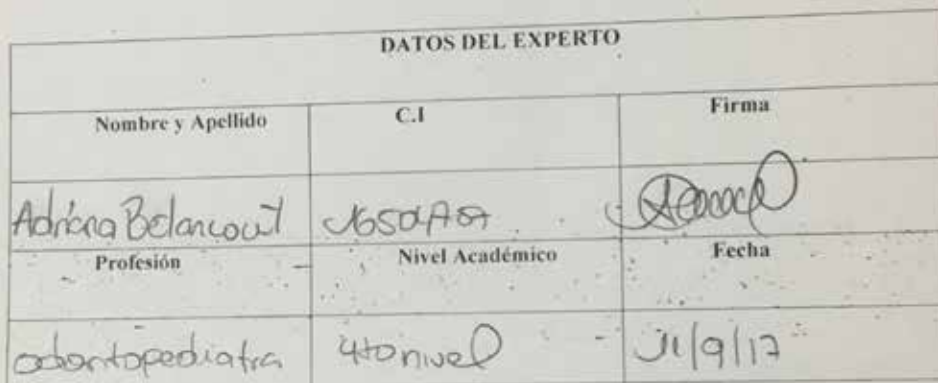 DATOS DEL EXPERTO
Nombre y Apellido C.I Firma
Adriana Betancourt
Profesión Nivel Académico Fecha
odontopediatra 4to nivel /9/17